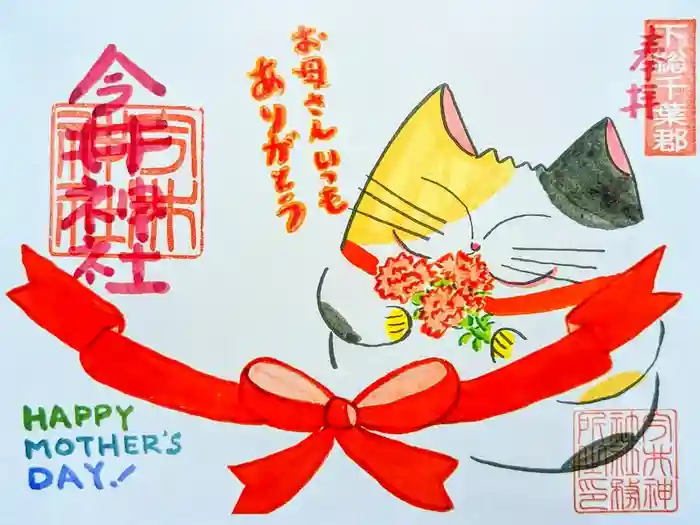 下総千葉郡
奉拝
お母さんいつも
ありがとう
今井神社
今井
神社
HAPPY
MOTHER'S
DAY!
今井神
社社務
所之印